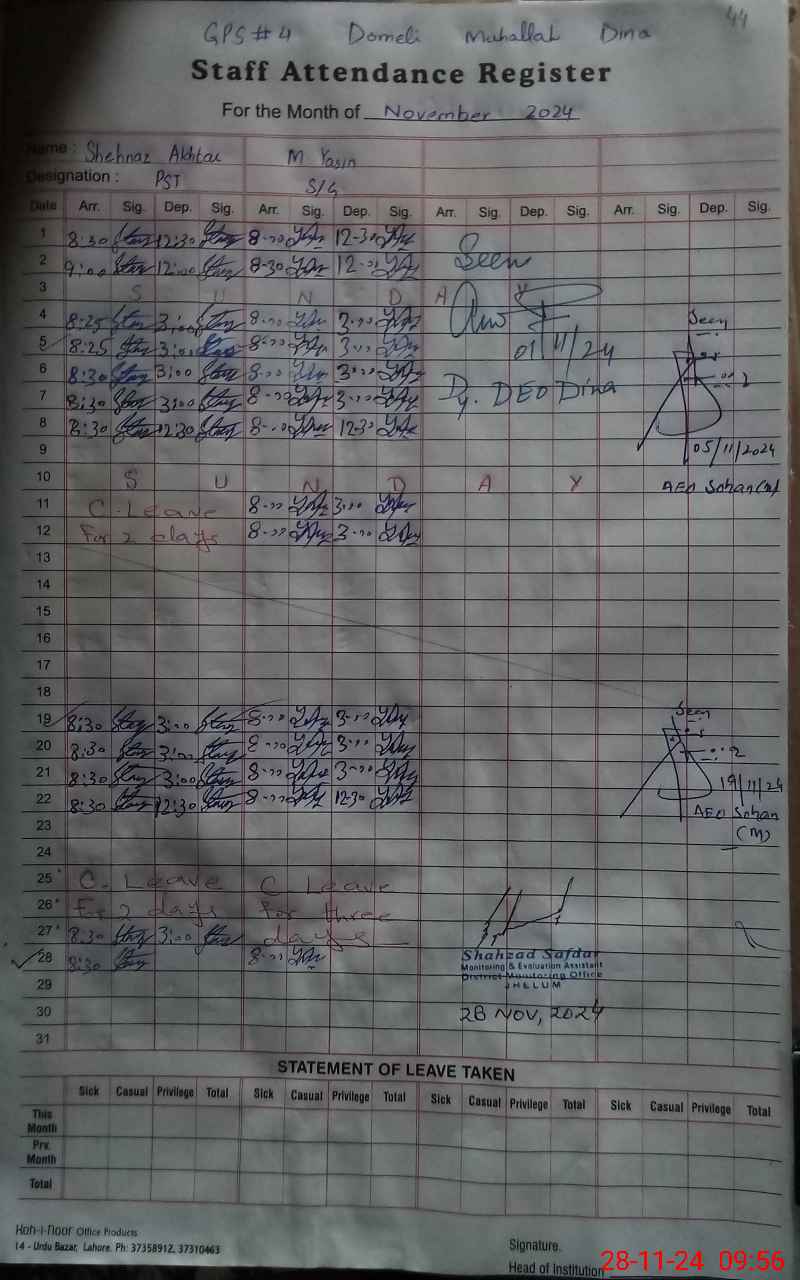 44
GPS # 4 Domeli Mahallah Dina
Staff Attendance Register
For the Month of November 2024
Name : Shehnaz Akhtar M Yasin
Designation : PST S/G
Date Arr. Sig. Dep. Sig. Arr. Sig. Dep. Sig. Arr. Sig. Dep. Sig. Arr. Sig. Dep. Sig.
1 8:30 12:30 8-00 12-30
2 9:00 12:00 8-30 12-00 Seen
3 S U N D A Y
4 8:25 3:00 8-00 3-00 Seen
5 8:25 3:00 8-00 3-00 01/11/24
6 8:30 3:00 8-00 3-00
7 8:30 3:00 8-00 3-00 Dy. DEO Dina
8 8:30 12:30 8-00 12-30
9 05/11/2024
10 S U N D A Y AEO Sohan (M)
11 C. Leave 8-00 3-00
12 For 2 days 8-00 3-00
13
14
15
16
17
18
19 8:30 3:00 8-00 3-00 Seen
20 8:30 3:00 8-00 3-00
21 8:30 3:00 8-00 3-00 19/11/24
22 8:30 12:30 8-00 12-30 AEO Sohan
23 (M)
24
25 C. Leave C. Leave
26 For 2 days for three
27 8:30 3:00 days
28 8:30 8-00 Shahzad Safdar
Monitoring & Evaluation Assistant
29 District Monitoring Office
JHELUM
30 28 NOV, 2024
31
STATEMENT OF LEAVE TAKEN
Sick Casual Privilege Total Sick Casual Privilege Total Sick Casual Privilege Total Sick Casual Privilege Total
This
Month
Prv.
Month
Total
Koh-i-Noor Office Products
14 - Urdu Bazar, Lahore. Ph: 37358912, 37310463
Signature.
Head of Institution
28-11-24 09:56